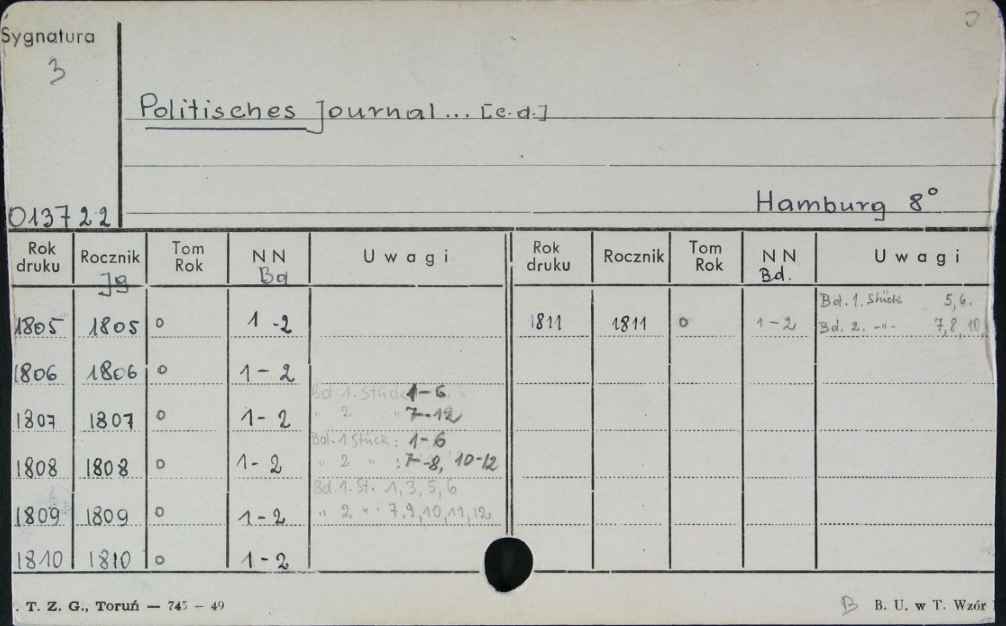 Sygnatura
3
Politisches Journal... [c.d.]
Hamburg 8°
013722
Rok druku Rocznik Tom Rok NN Uwagi Rok druku Rocznik Tom Rok NN Uwagi
Jg Bd Bd.
Bd. 1. Stück 5,6.
1805 1805 o 1-2 1811 1811 o 1-2 Bd. 2. -"- 7,8,10,
1806 1806 o 1-2
Bd. 1. Stück 1-6
1807 1807 o 1-2 " 2 " 7-12
Bd. 1 Stück: 1-6
1808 1808 o 1-2 " 2 " : 7-8, 10-12
Bd. 1. St. 1,3,5,6
1809 1809 o 1-2 " 2 " 7.9,10,11,12
1810 1810 o 1-2
. T. Z. G., Toruń — 745 — 49
B B. U. w T. Wzór